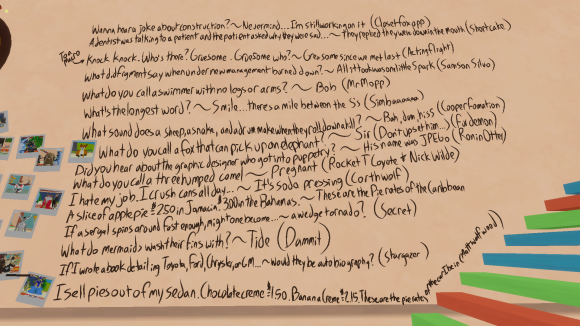 Wanna hear a joke about construction? ~ Nevermind... I'm still working on it (Closetfoxapp)
A dentist was talking to a patient and the patient asked why they were sad... ~ They replied they were down in the mouth (Shortcake)
Knock Knock. Who's there? Gruesome. Gruesome who? ~ Grew some since we met last (Actingflight)
What did figment say when under new management burned down? ~ All it took was one little Spark (Samson Silvo)
What do you call a swimmer with no legs or arms? ~ Bob (Mr Mopp)
What's the longest word? ~ Smile... there's a mile between the Ss (Simbaaaaaa)
What sound does a sheep, a snake, and a drum make when they roll down a hill? ~ Bah, dum, hiss (Cooperfomation)
What do you call a fox that can pick up an elephant? ~ Sir (Do it upset him...) (fur demon)
Did you hear about the graphic designer who got into puppetry? ~ His name was JPEGo (RoninOtter)
What do you call a three humped camel ~ Pregnant (Rocket T Coyote & Nick Wilde)
I hate my job. I crush cans all day... ~ It's soda pressing (Corthwolf)
A slice of apple pie $2.50 in Jamacia. $3.00 in the Bahamas. ~ These are the Pie rates of the Caribbean
If a sergal spins around fast enough, might one become... ~ a wedge tornado? (Secret)
What do mermaids wash their fins with? ~ Tide (Dammit)
If I wrote a book detailing Toyota, Ford, Chrysler, or G.M... ~ Would they be auto biography? (Stargazer)
I sell pies out of my sedan. Chocolate creme $1.50. Banana Creme $2.15. These are the pie rates